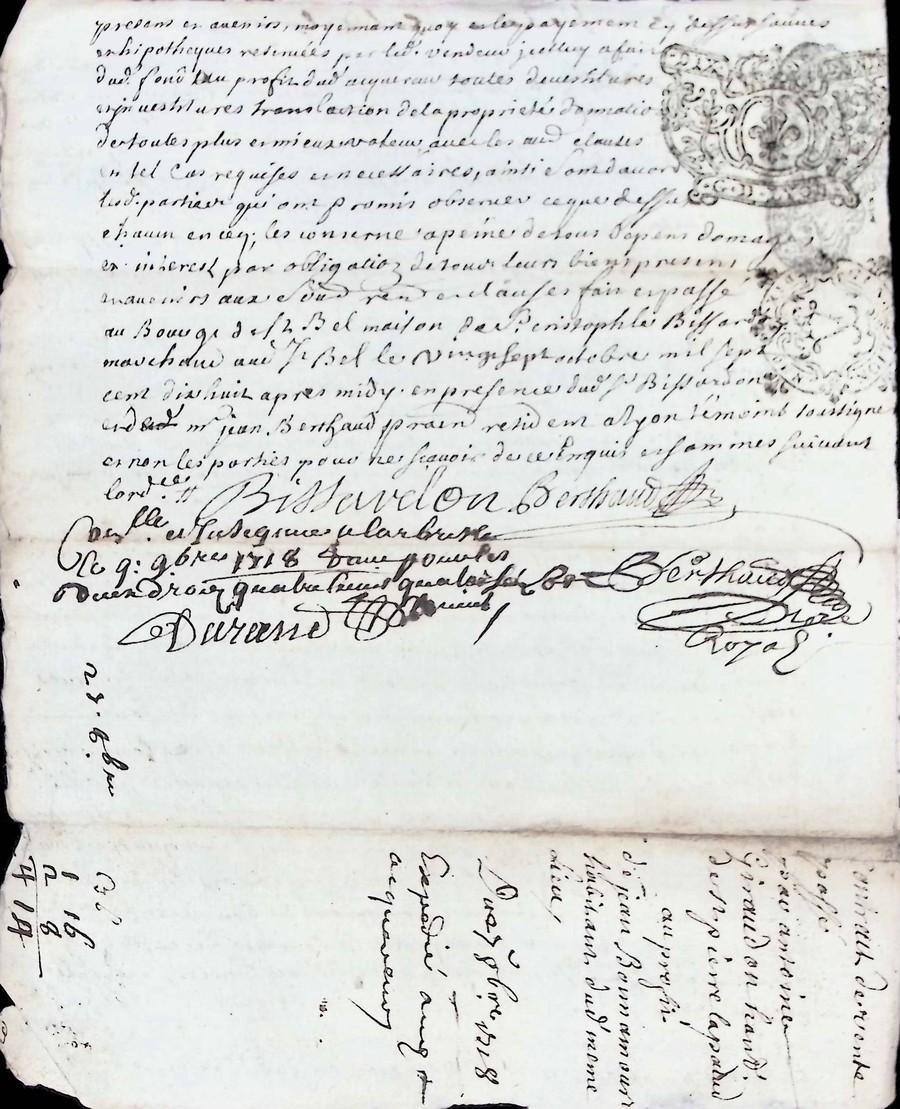 presens et avenirs, moyennant quoy et le payement cy dessus sauves
et hipotheques reservées par led. vendeur jcelluy a fait
dud. fond au profit dud. acquereur toutes devestitures
et jnvestitures translaction de la proprieté donnation
de toutes plus et mieux valeur avec les aud clauses
en tel cas requises et necessaires, ainsi sont d'accord
lesd. parties qui ont promis observer ce que dessus
chacun en ce qui les conserne a peine de tous depens domages
et interest par obligation de tous leurs biens presens
et avenirs aux et clauses fait et passé
au Bourg de St Bel maison de Sr. Cristophle Bissardon
marchand aud St Bel le vingt sept octobre mil sept
cent dix huit apres midy en presence dud. Sr Bissardon
et de mr jean Berthaud resident a Lyon temoins soussigné
et non les parties pour ne sçavoir de ce enquis et sommes suivant
lord.ce
Bissardon Berthaud
et Insegnué a larbresle
le 9: 9bre 1718
du en droit
Berthaud
Durand
Royal
27. 8bre
1 16
2 8
4 14
contrait de vente
passé
par antoine
Giraudon hant.
de St pierre lapalud
au profit
de jean Bonnamour
habitant dud meme
lieu,
Du 27 8bre 1718
Expedié aud
acquereur